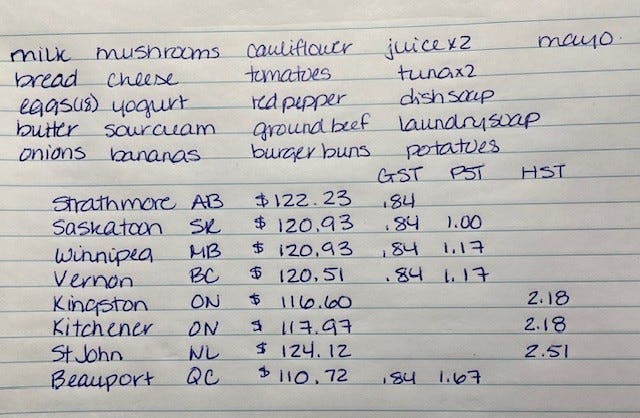 milk mushrooms cauliflower juice x2 mayo.
bread cheese tomatoes tuna x2
eggs (18) yogurt red pepper dish soap
butter sour cream ground beef laundry soap
onions bananas burger buns potatoes
GST PST HST
Strathmore AB $122.23 .84
Saskatoon SK $120.93 .84 1.00
Winnipeg MB $120.93 .84 1.17
Vernon BC $120.51 .84 1.17
Kingston ON $116.60 2.18
Kitchener ON $117.97 2.18
St John NL $124.12 2.51
Beauport QC $110.72 .84 1.67